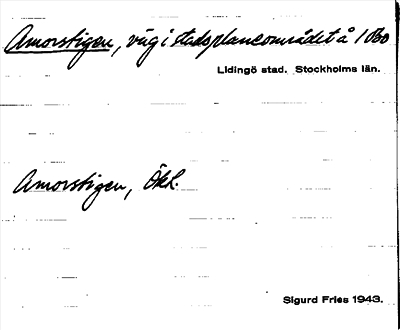 Amorstigen, väg i stadsplaneområdet å
Lidingö stad. Stockholms län.
Amorstigen, Ökl.
Sigurd Fries 1943.